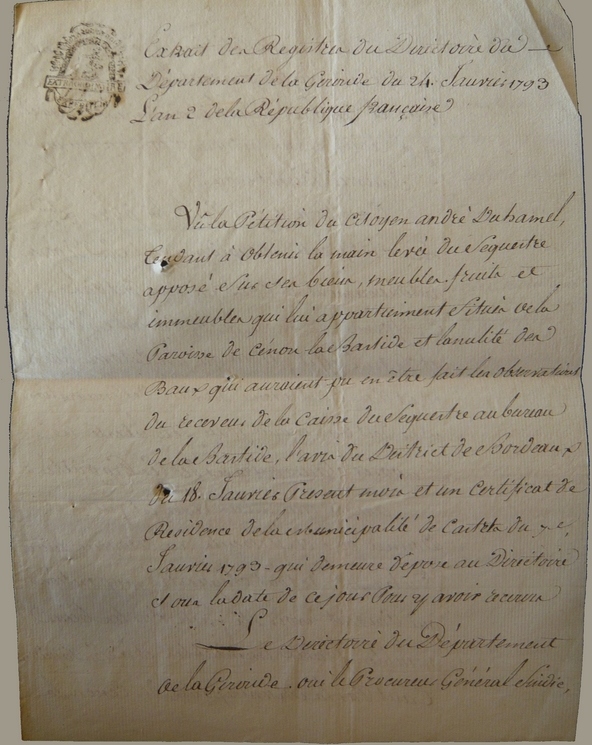 Extrait des Registres du Directoire du
Département de la Gironde du 24 Janvier 1793
L'an 2 de la République française
Vû la Pétition du Citoyen andré Duhamel,
Tendant à obtenir la main levée du Sequestre
apposé sur ses biens, meubles fruits et
immeubles qui lui appartiennent Situés de la
Paroisse de Cénon la Bastide et la nulité des
Baux qui auraient pu en être fait les observations
du receveur de la Caisse du Sequestre au bureau
de la Bastide, l'avis du District de Bordeaux
du 18 Janvier Present mois et un certificat de
Residence de la Municipalité de du
Janvier 1793 - qui demeure déposé au Directoire
sous la date de ce jour Pour y avoir recours
Le Directoire du Département
de la Gironde. oui le Procureur Général Sindic,